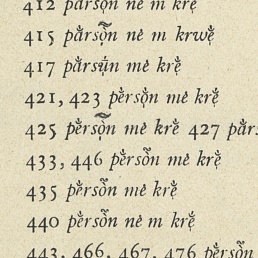 412 pårsǫ̀n nė m krę̊
415 pårsǫ̀̃n nė m krwę̊
417 pårsų̊n mė krę̊
421, 423 pė̊rsǫ̊n mė krę̊
425 pė̊rsǫ̀̃n mė krė̊ 427 pårs
433, 446 pė̊rsȍ̃n mė krę̊
435 pė̊rsȍ̃n mė krę̊
440 pė̊rsȍ̃n nė m krę̊
443, 466, 467, 476 pė̊rsȍ̃n